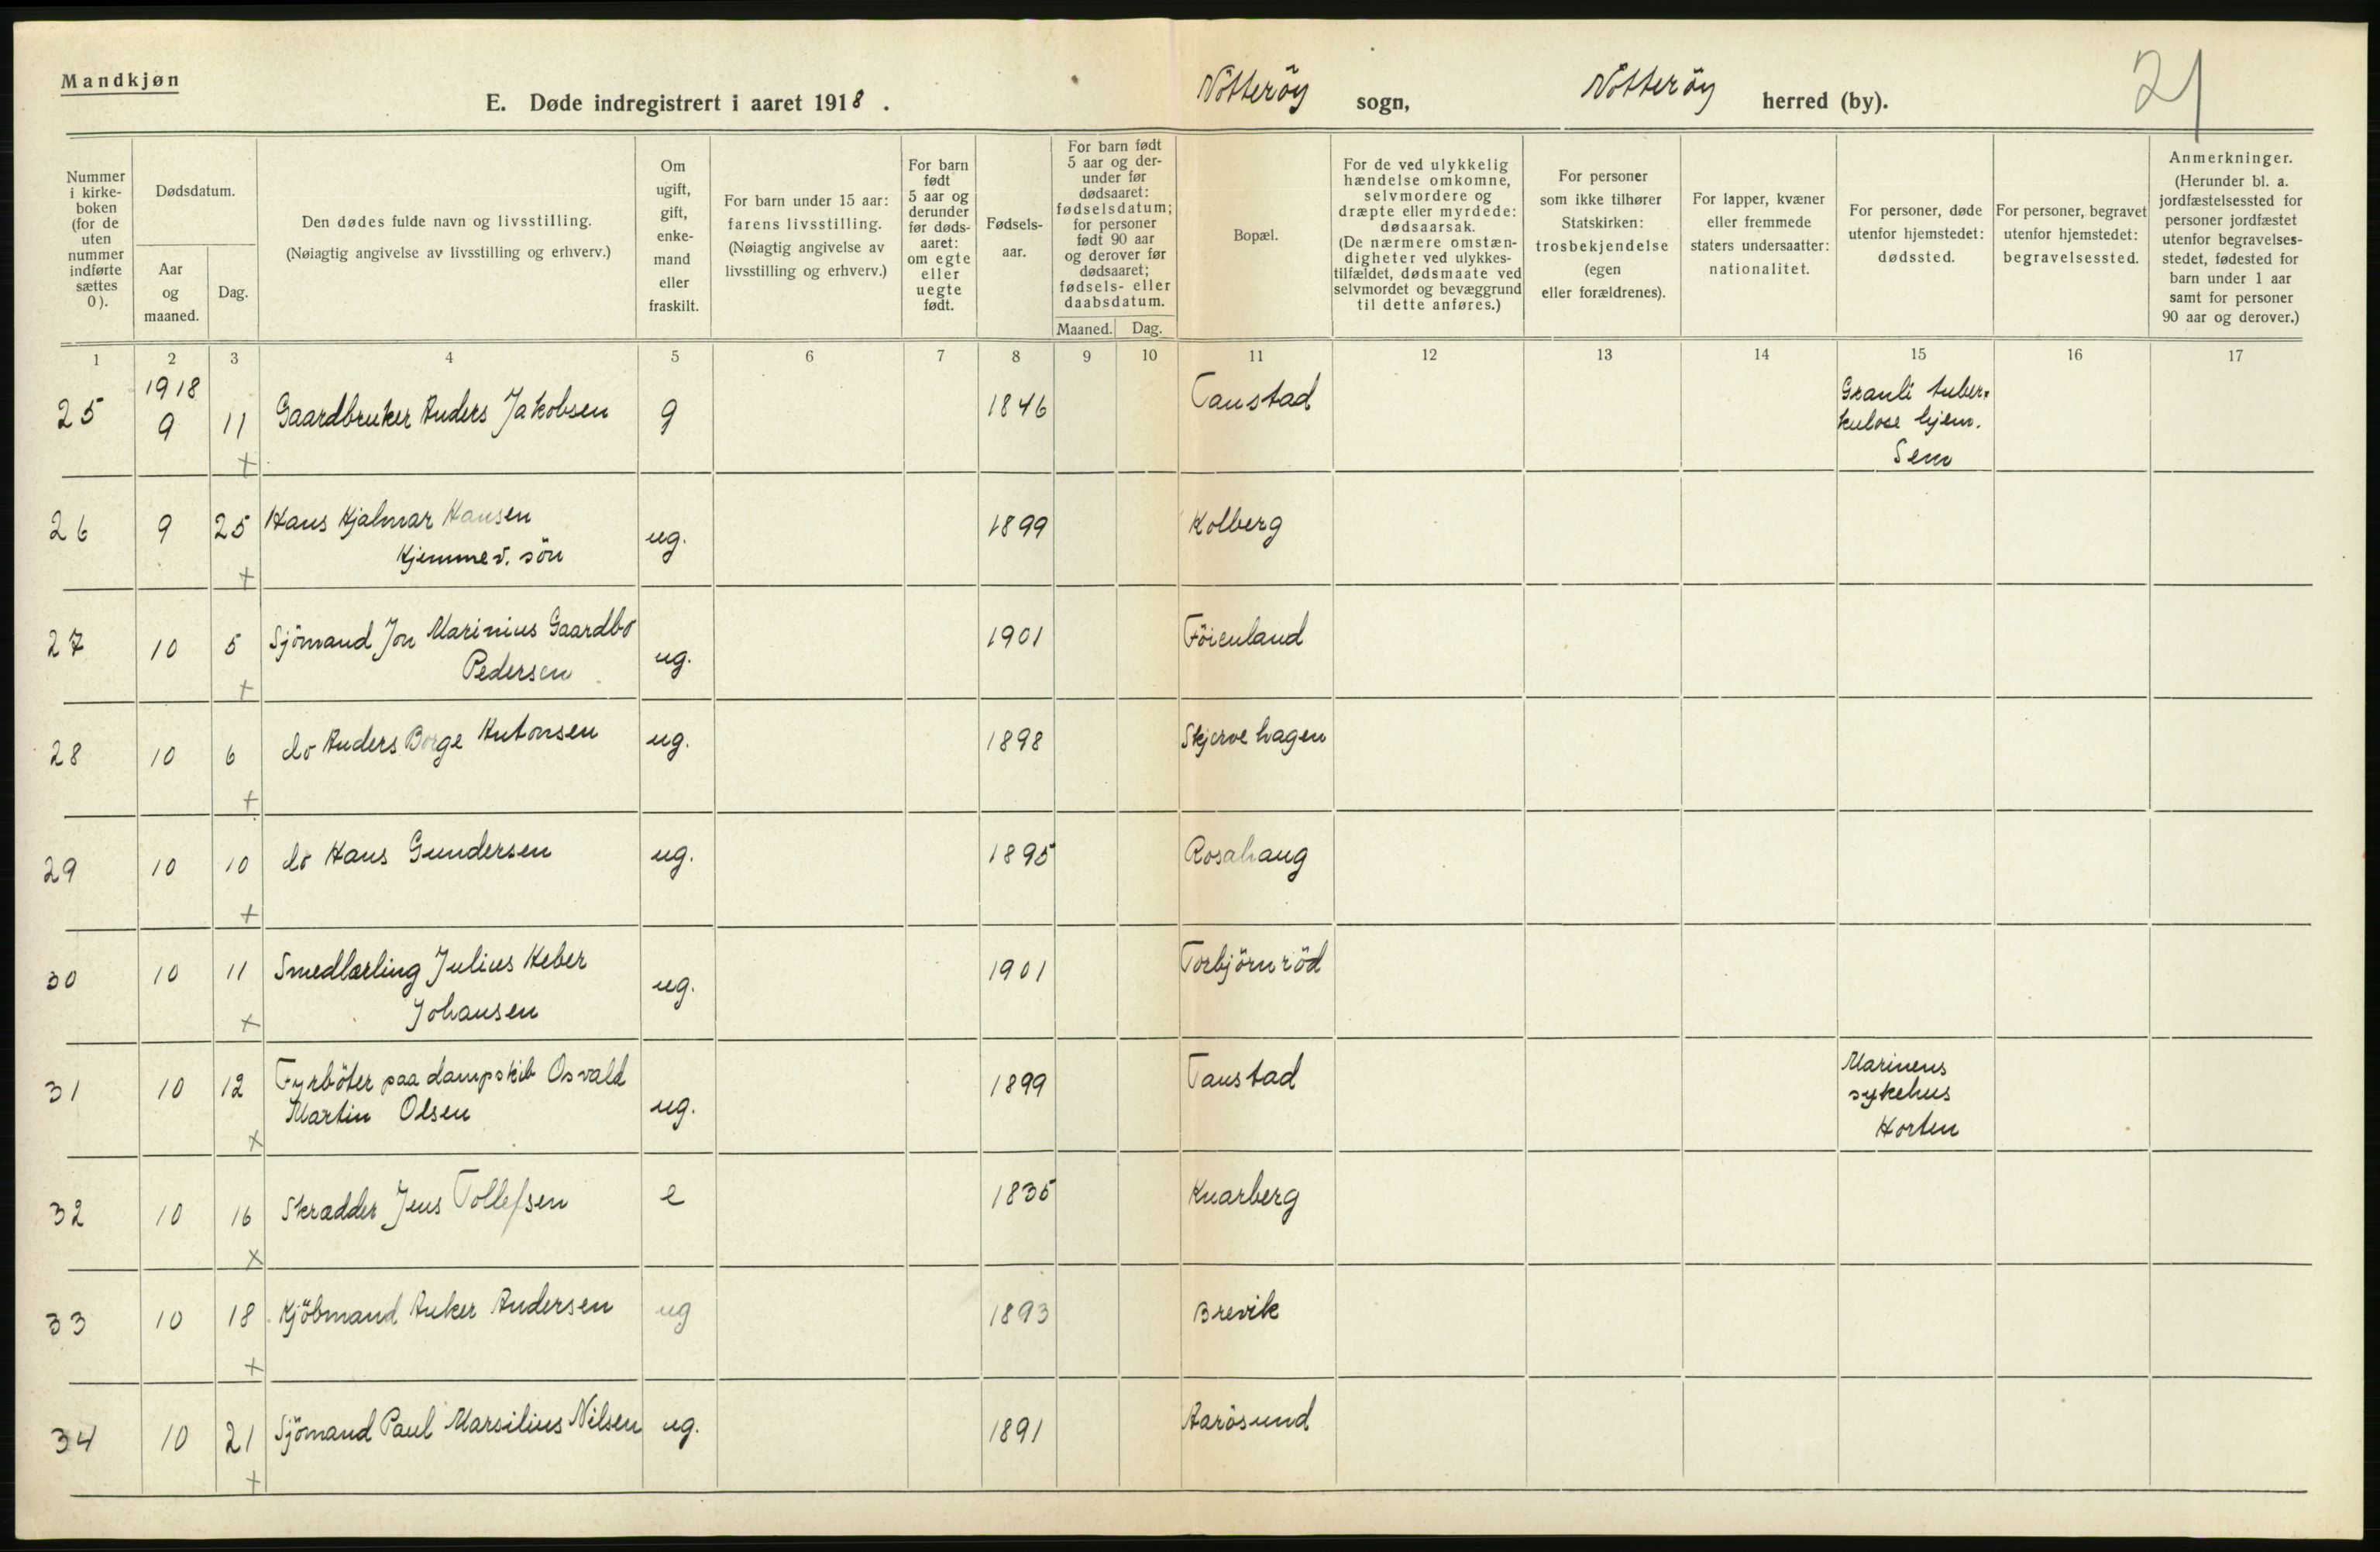 Mandkjøn
E. Døde indregistrert i aaret 1918.
Nötteröy sogn, Nötteröy herred (by).
21
Nummer i kirke-boken (for de uten nummer indførte sættes 0).
Dødsdatum.
Aar og maaned.
Dag.
Den dødes fulde navn og livsstilling.
(Nøiagtig angivelse av livsstilling og erhverv.)
Om ugift, gift, enke-mand eller fraskilt.
For barn under 15 aar: farens livsstilling.
(Nøiagtig angivelse av livsstilling og erhverv.)
For barn født 5 aar og derunder før døds-aaret: om egte eller uegte født.
Fødsels-aar.
For barn født 5 aar og der-under før dødsaaret: fødselsdatum; for personer født 90 aar og derover før dødsaaret; fødsels- eller daabsdatum.
Maaned. Dag.
Bopæl.
For de ved ulykkelig hændelse omkomne, selvmordere og dræpte eller myrdede: dødsaarsak.
(De nærmere omstæn-digheter ved ulykkes-tilfældet, dødsmaate ved selvmordet og bevæggrund til dette anføres.)
For personer som ikke tilhører Statskirken: trosbekjendelse (egen eller forældrenes).
For lapper, kvæner eller fremmede staters undersaatter: nationalitet.
For personer, døde utenfor hjemstedet: dødssted.
For personer, begravet utenfor hjemstedet: begravelsessted.
Anmerkninger.
(Herunder bl. a. jordfæstelsessted for personer jordfæstet utenfor begravelses-stedet, fødested for barn under 1 aar samt for personer 90 aar og derover.)
1 2 3 4 5 6 7 8 9 10 11 12 13 14 15 16 17
1918
25 9 11 Gaardbruker Anders Jakobsen g 1846 Tanstad Granli tuber-
kulose hjem.
Sem
+
26 9 25 Hans Hjalmar Hansen ug. 1899 Kolberg
Hjemmev. sön
+
27 10 5 Sjömand Jon Marinius Gaardbo 1901 Föienland
Pedersen ug.
+
28 10 6 do Anders Borge Antonsen ug. 1898 Skjerve hagen
+
29 10 10 do Hans Gundersen ug. 1895 Rosahaug
+
30 10 11 Smedlærling Julius Heber 1901 Torbjörnröd
Johansen ug.
+
31 10 12 Fyrböter paa dampskib Osvald 1899 Tanstad Marinens
Martin Olsen ug. sykehus
Horten
+
32 10 16 Skrædder Jens Tollefsen e 1835 Knarberg
+
33 10 18 Kjöbmand Anker Andersen ug 1893 Brevik
+
34 10 21 Sjömand Paul Marsilius Nilsen ug. 1891 Aarösund
+